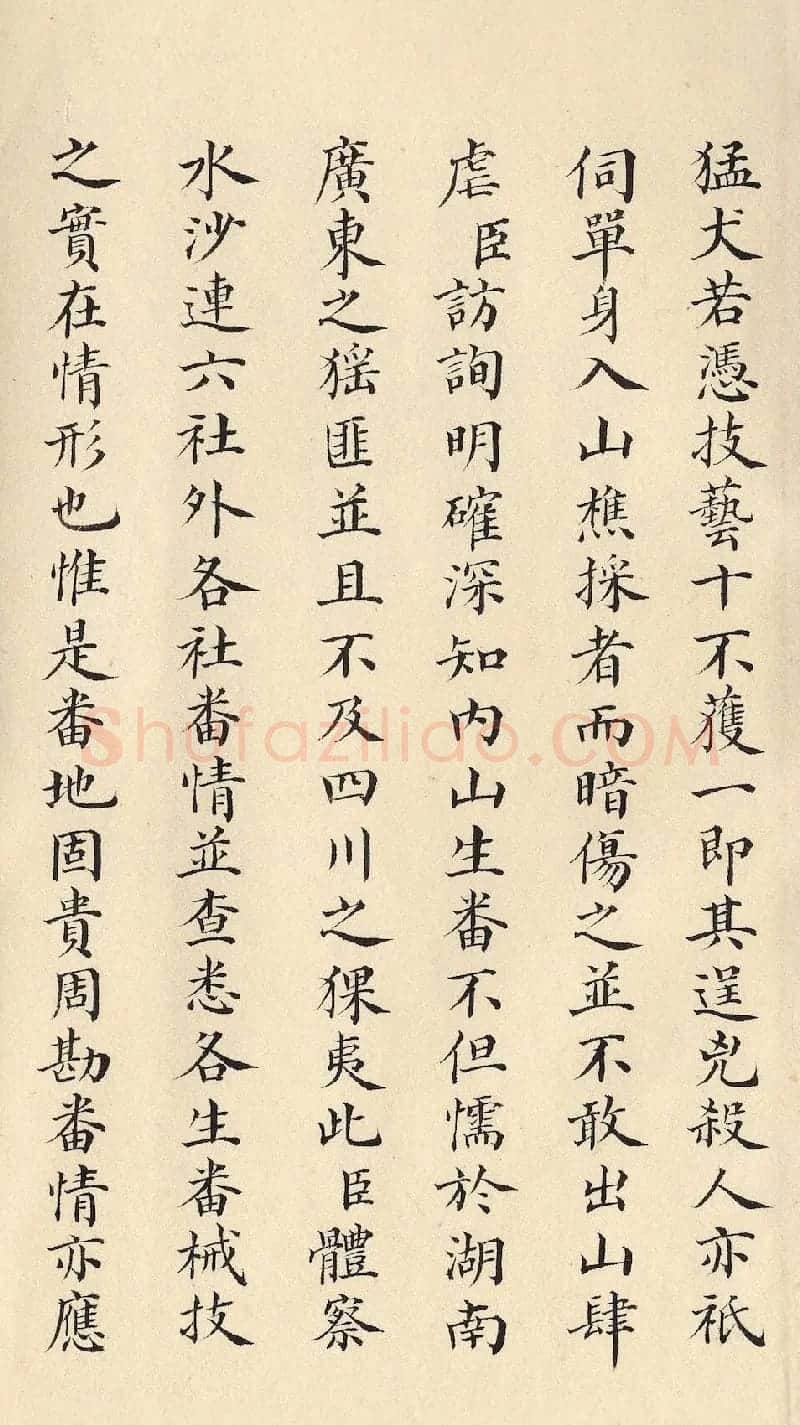 猛犬若憑技藝十不獲一即其逞兇殺人亦祇
伺單身入山樵採者而暗傷之並不敢出山肆
虐臣訪詢明確深知內山生番不但懦於湖南
廣東之猺匪並且不及四川之猓夷此臣體察
水沙連六社外各社番情並查悉各生番械技
之實在情形也惟是番地固貴周勘番情亦應
Shufazilido.COM